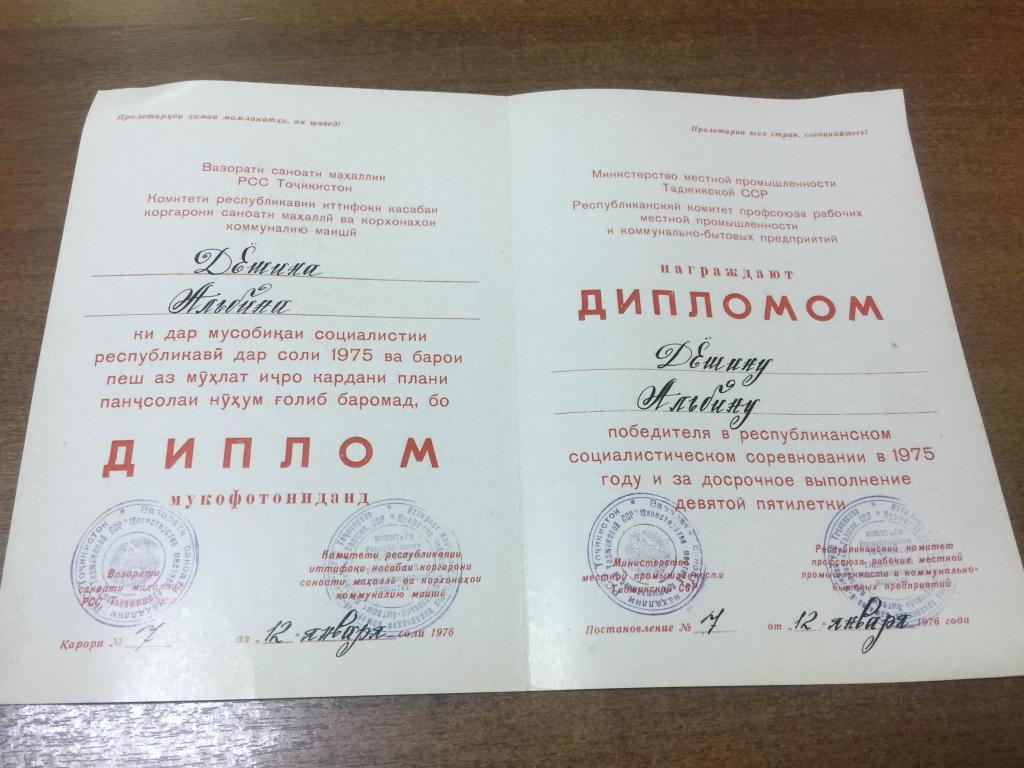 Пролетарҳои ҳамаи мамлакатҳо, як шавед!
Вазорати саноати маҳаллии
РСС Тоҷикистон
Комитети республикавии иттифоқи касабаи
коргарони саноати маҳаллӣ ва корхонаҳои
коммуналию маишӣ
Дёшина
Альбина
ки дар мусобиқаи социалистии
республикавӣ дар соли 1975 ва барои
пеш аз мӯҳлат иҷро кардани плани
панҷсолаи нӯҳум ғолиб баромад, бо
ДИПЛОМ
мукофотониданд
Вазорати
саноати маҳаллии
РСС Тоҷикистон
Комитети республикавии
иттифоқи касабаи коргарони
саноати маҳаллӣ ва корхонаҳои
коммуналию маишӣ
Қарори № 7 аз „12" января соли 1976
Пролетарии всех стран, соединяйтесь!
Министерство местной промышленности
Таджикской ССР
Республиканский комитет профсоюза рабочих
местной промышленности
и коммунально-бытовых предприятий
награждают
ДИПЛОМОМ
Дёшину
Альбину
победителя в республиканском
социалистическом соревновании в 1975
году и за досрочное выполнение
девятой пятилетки
Министерство
местной промышленности
Таджикской ССР
Республиканский комитет
профсоюза рабочих местной
промышленности и коммунально-
бытовых предприятий
Постановление № 7 от „12" января 1976 года